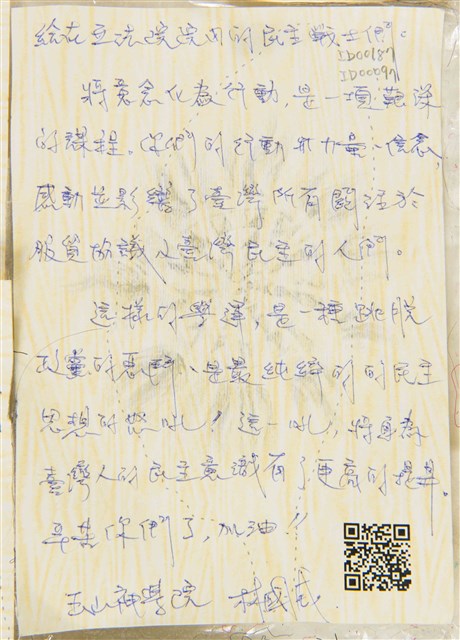 給在立法院院內的民主戰士們。
ID00187
ID00097
將意念化為行動,是一項艱深
的課程。你們的行動、力量、信念,
感動並影響了臺灣所有關注於
服貿協議及臺灣民主的人們。
這樣的學運,是一種跳脫
政黨的惡鬥、是最純綷的的民主
思想的怒吼!這一吼,將身為
臺灣人的民主意識有了更高的提升。
辛苦你們了,加油!!
玉山神學院 林國